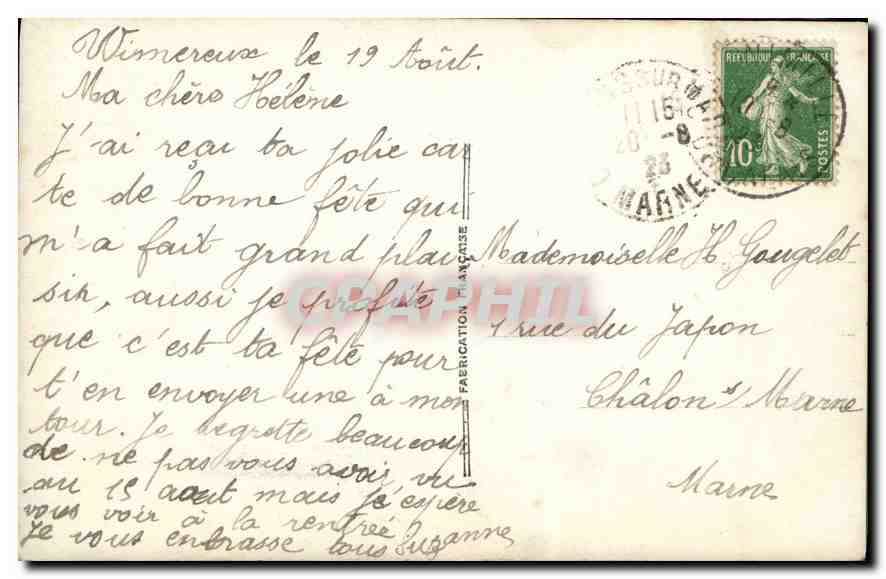 Wimereux le 19 Août.
Ma chère Hélène
J'ai reçu ta jolie car
te de bonne fête qui
m'a fait grand plai
sir, aussi je profite
que c'est ta fête pour
t'en envoyer une à mon
tour. Je regrette beaucoup
de ne pas vous avoir vu
au 15 août mais j'espère
vous voir à la rentrée.
Je vous embrasse tous Suzanne
FABRICATION FRANÇAISE
REPUBLIQUE FRANÇAISE
10c
POSTES
SUR MARNE
11 15
20 -8
23
MARNE
Mademoiselle H. Gougelet
1 rue du Japon
Châlon s/ Marne
Marne
CPAPHIL